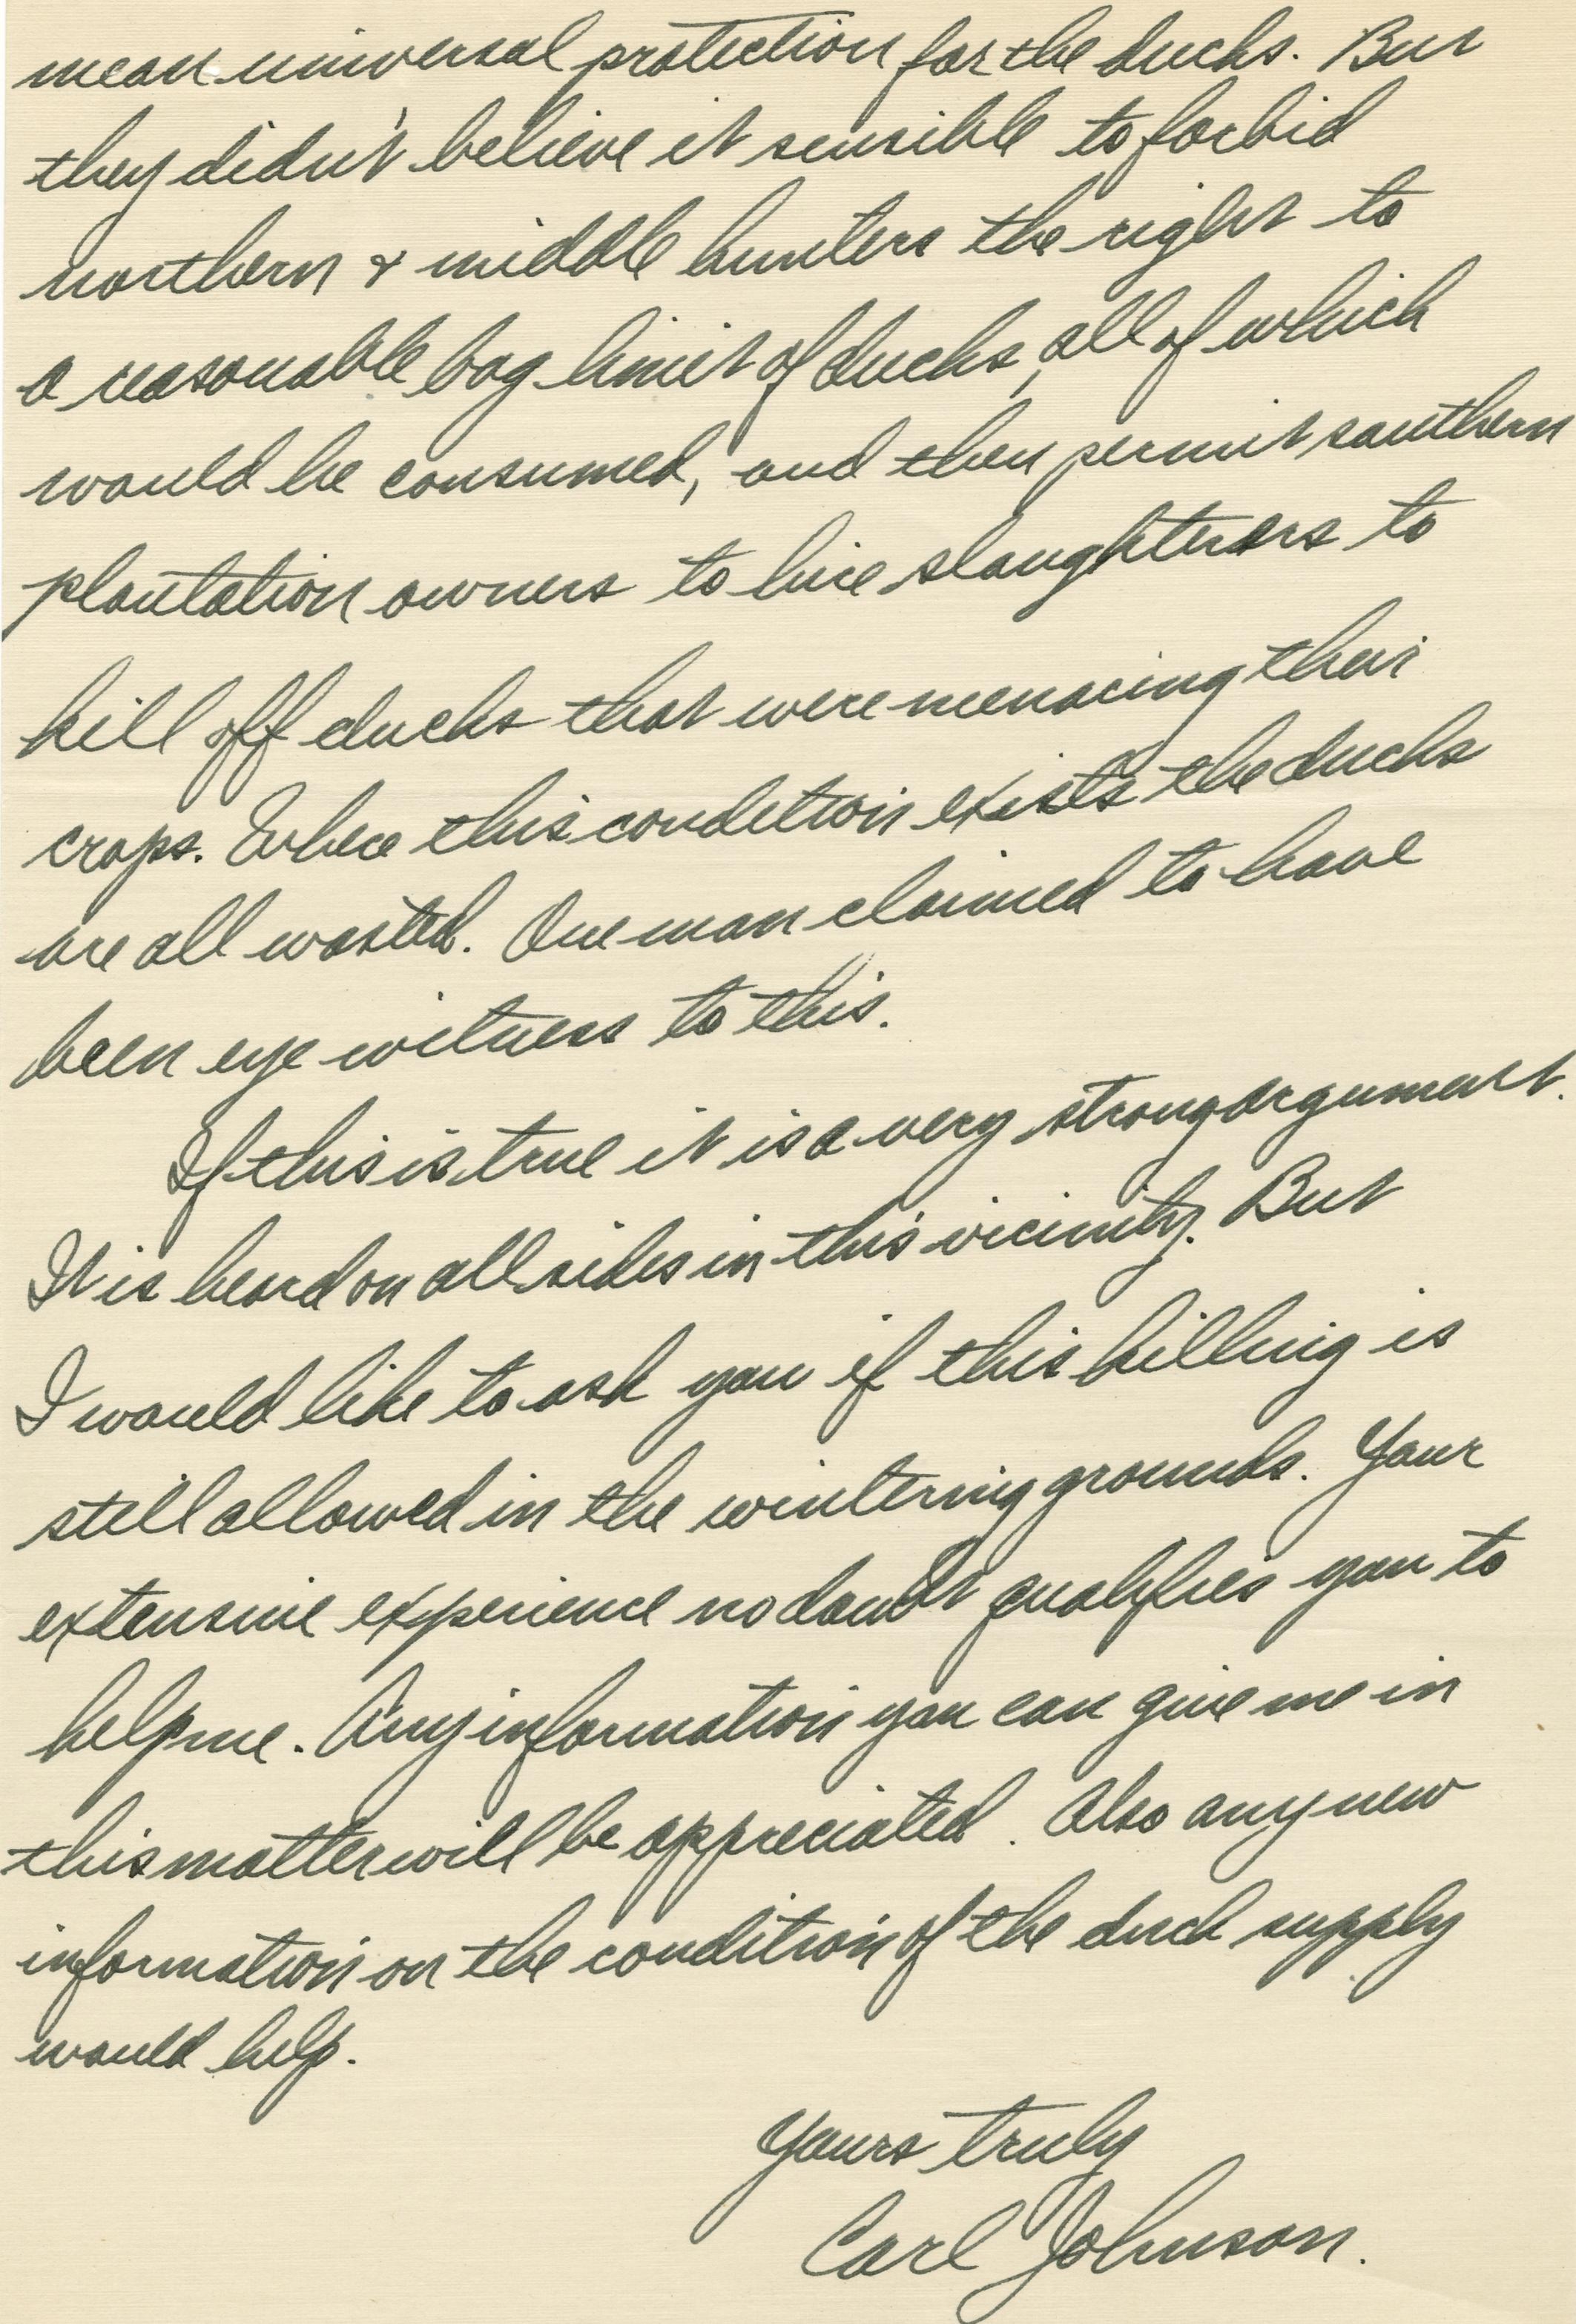 mean universal protection for the ducks. But
they didn't believe it sensible to forbid
northern & middle hunters the right to
a reasonable bag limit of ducks, all of which
would be consumed, and then permit southern
plantation owners to hire slaughterers to
kill off ducks that were menacing their
crops. Where this condition exists the ducks
are all wasted. One man claimed to have
been eye witness to this.
If this is true it is a very strong argument.
It is heard on all sides in this vicinity. But
I would like to ask you if this killing is
still allowed in the wintering grounds. Your
extensive experience no doubt qualifies you to
help me. Any information you can give me in
this matter will be appreciated. Also any new
information on the condition of the duck supply
would help.
Yours truly
Carl Johnson.